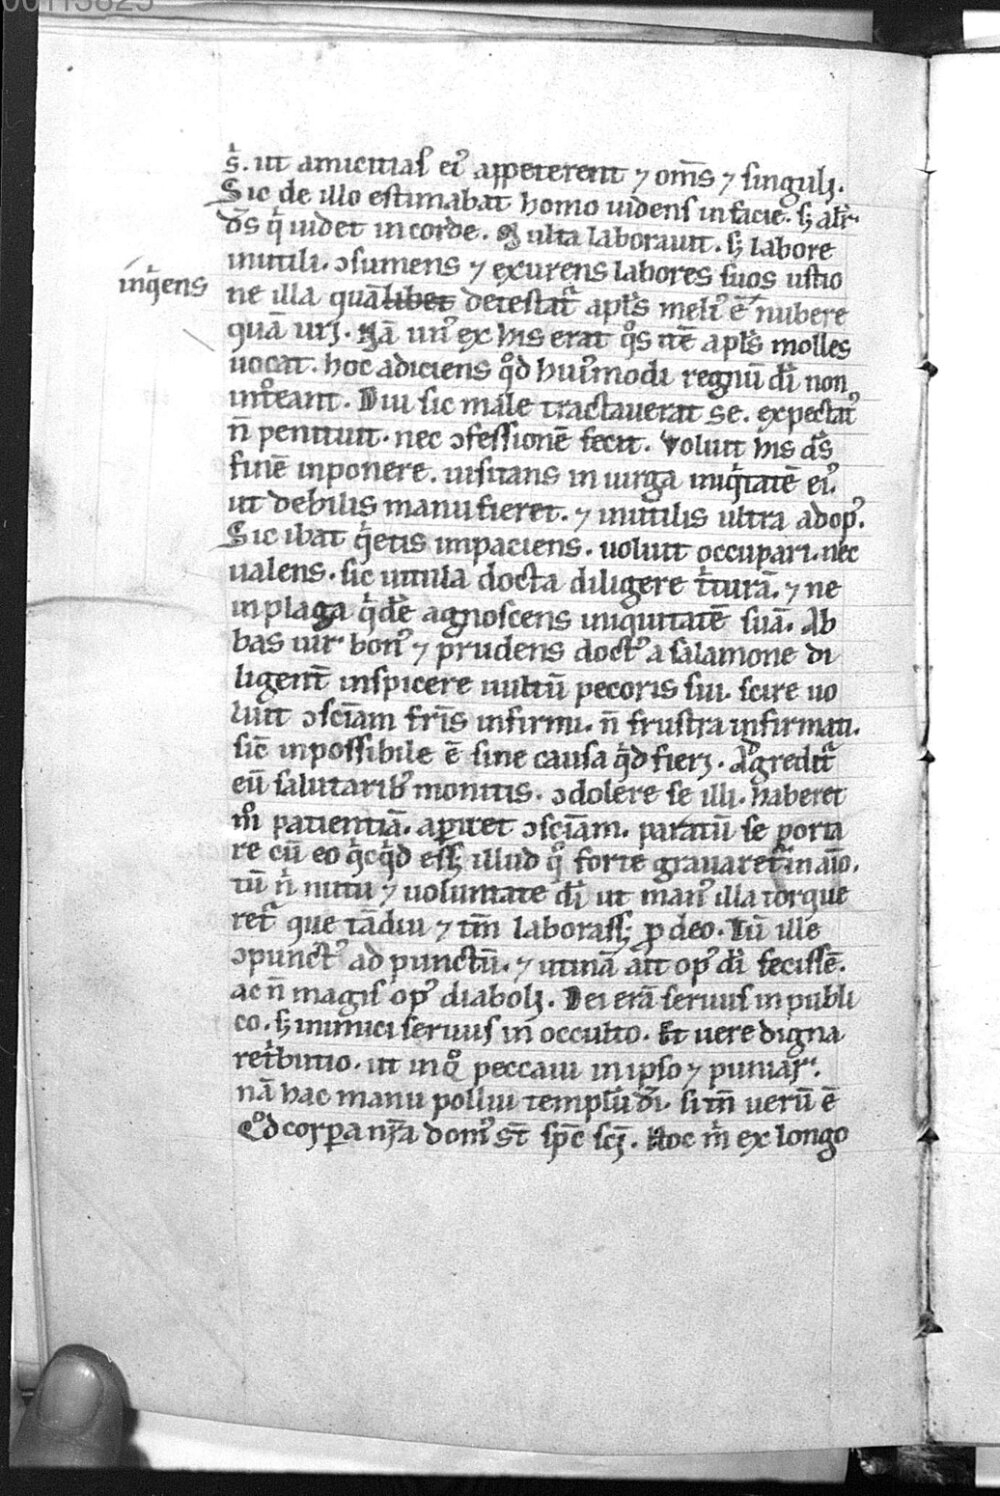 00113825
g̾. ut amicitias eiꝰ appeterent ⁊ om̅s ⁊ singulj.
Sic de illo estimabat homo uidens in facie. sꝫ alit̾
d̅s q̾ uidet in corde. Multa laborauit. sꝫ labore
inutili. ↄsumens ⁊ exurens labores suos ustio
inq̾ens
ne illa quālibet detestat̾ apl̅s meliꝰ ē nubere
quā urj. Nā unꝰ ex his erat q̊s itē apl̅s molles
uocat. hoc adiciens q̊d huiꝰmodi regnū di̅ non
int̾eant. Diu sic male tractauerat se. expectatꝰ
n̅ penituit. nec ↄfessionē fecit. Voluit his d̅s
finē inponere. uisitans in uirga iniq̾tatē eiꝰ.
ut debilis manu fieret. ⁊ inutilis ultra ad opꝰ.
Sic ibat q̾etis impaciens. uoluit occupari. nec
ualens. sic uitula docta diligere t̾turā. ⁊ ne
in plaga q̾dē agnoscens iniquitatē suā. Ab
bas uir bonꝰ ⁊ prudens doctꝰ a salamone di
ligent̅ inspicere uultū pecoris sui. scire uo
luit ↄsci̅am fr̅is infirmi. n̅ frustra infirmati.
sic̅ inpossibile ē sine causa q̾d fierj. Agḡredit̾
eū salutaribꝰ monitis. ↄdolere se illi. haberet
m̊ patientiā. apiret ↄsci̅am. paratū se porta
re cū eo q̾cq̾d essꝫ illud q̊ forte grauaret̾ in ai̅o.
tū n̾ nutu ⁊ uoluntate di̅ ut manꝰ illa torque
ret̾ que tādiu ⁊ tm̅ laborassꝫ ꝓ deo. Tū ille
ↄpunctꝰ ad punctū. ⁊ utinā ait opꝰ di̅ fecissē.
ac n̅ magis opꝰ diabolj. Dei erā seruus in publi
co. sꝫ inimici seruus in occulto. Et uere digna
ret̾butio. ut in q̊ peccaui in ipso ⁊ puniar.
nā hac manu pollui templū di̅. si tn̅ uerū ē
Qd̊ corꝑa nr̅a domꝰ st̅ sp̅c scj̅. Hoc m̾ ex longo